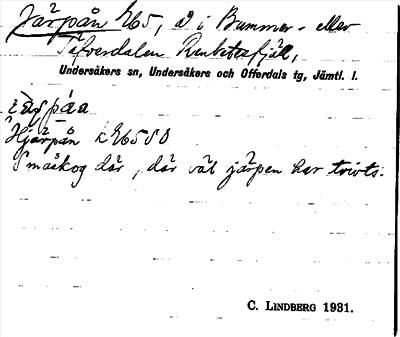 Järpån k65, å i Bummer- eller
Täfverdalen Renbetesfjäll,
Undersåkers sn, Undersåkers och Offerdals tg, Jämtl. l.
Hjärpån k 65 SO
Småskog där, där väl järpen har trivts.
C. LINDBERG 1931.